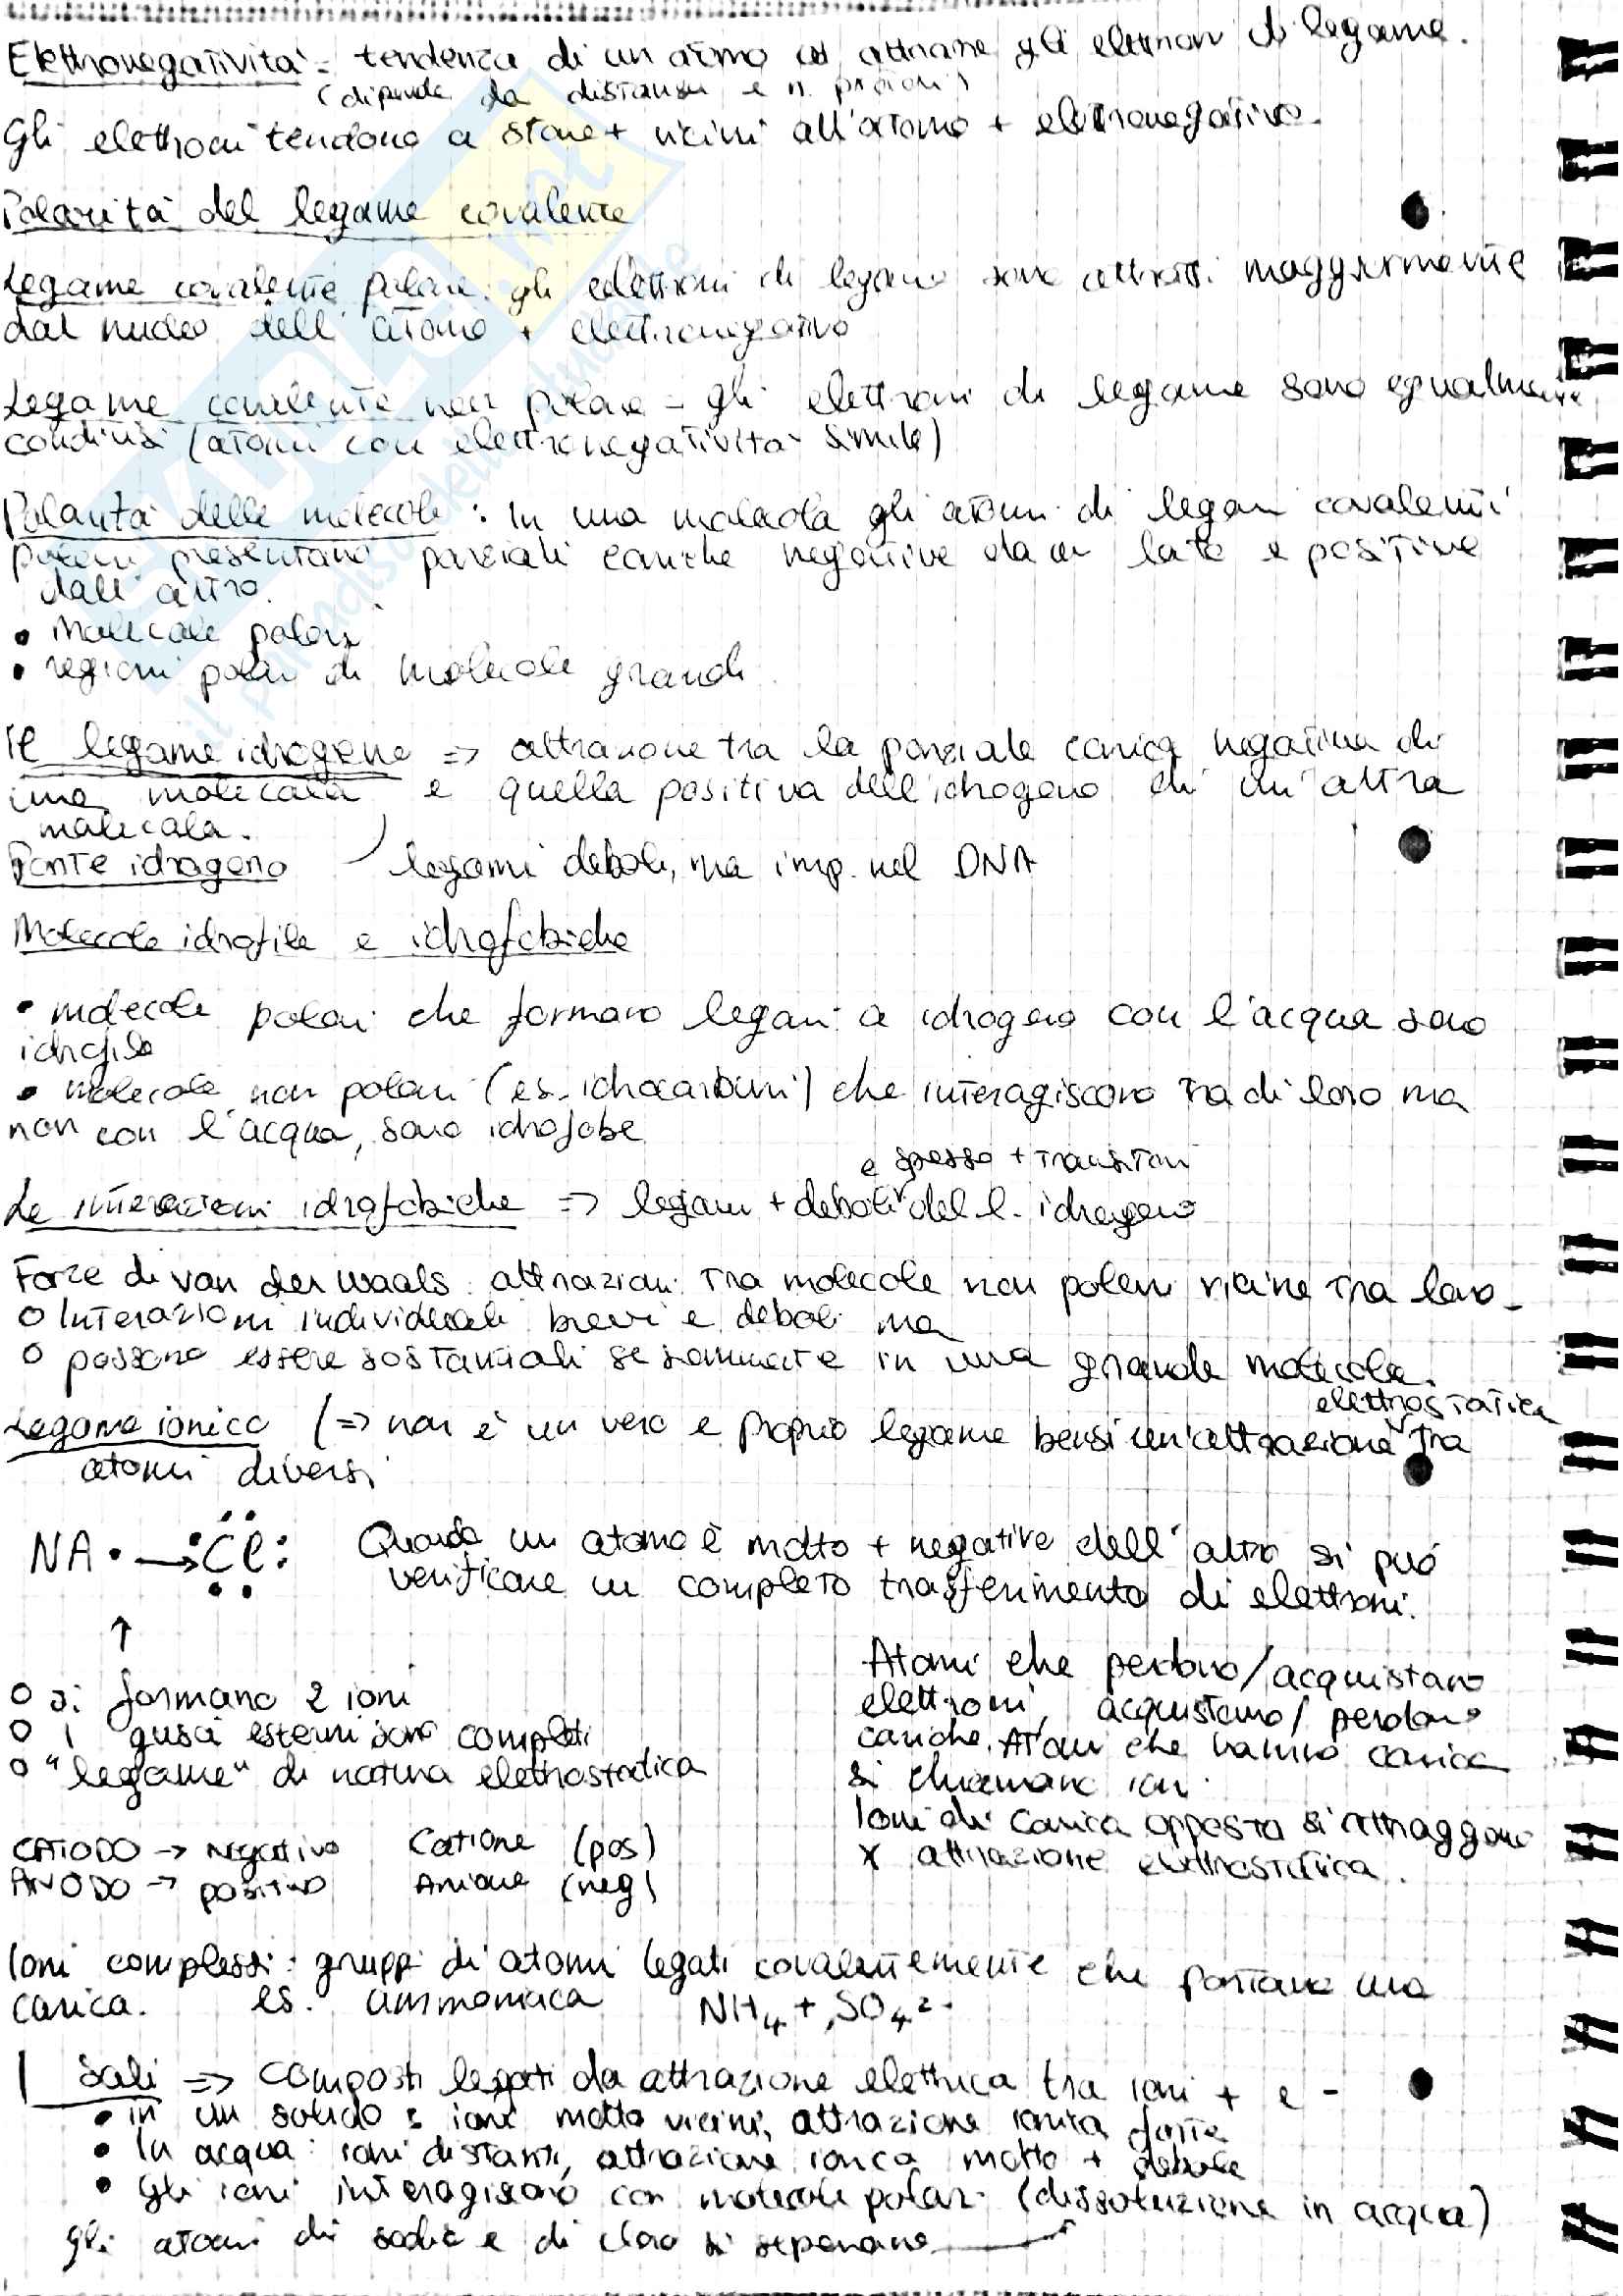 Elettronegatività = tendenza di un atomo ad attrarre gli elettroni di legame.
(dipende da distanza e n. protoni)
Gli elettroni tendono a stare + vicini all'atomo + elettronegativo.
Polarità del legame covalente
Legame covalente polare: gli elettroni di legame sono attratti maggiormente
dal nucleo dell'atomo + elettronegativo
Legame covalente non polare = gli elettroni di legame sono egualmente
condivisi (atomi con elettronegatività simile)
Polarità delle molecole: In una molecola gli atomi di legami covalenti
polari presentano parziali cariche negative da un lato e positive
dall'altro.
• Molecole polari
• regioni polari di molecole grandi
Il legame idrogeno => attrazione tra la parziale carica negativa di
una molecola e quella positiva dell'idrogeno di un'altra
molecola.
Ponte idrogeno legami deboli, ma imp. nel DNA
Molecole idrofile e idrofobiche
• molecole polari che formano legami a idrogeno con l'acqua sono
idrofile
• molecole non polari (es. idrocarburi) che interagiscono tra di loro ma
non con l'acqua, sono idrofobe
e spesso + transitori
Le interazioni idrofobiche => legami + deboli del l. idrogeno
Forze di van der Waals: attrazioni tra molecole non polari vicine tra loro.
o Interazioni individuali brevi e deboli ma
o possono essere sostanziali se sommate in una grande molecola.
elettrostatica
Legame ionico (=> non è un vero e proprio legame bensì un'attrazione tra
atomi diversi
NA• → Cl Quando un atomo è molto + negativo dell'altro si può
verificare un completo trasferimento di elettroni.
↑
Atomi che perdono/acquistano
elettroni, acquistano/perdono
cariche. Atomi che hanno carica
si chiamano ioni.
Ioni di carica opposta si attraggono
x attrazione elettrostatica.
o si formano 2 ioni
o i gusci esterni sono completi
o "legame" di natura elettrostatica
CATODO → negativo Catione (pos)
ANODO → positivo Anione (neg)
Ioni complessi: gruppi di atomi legati covalentemente che portano una
carica. es. ammoniaca NH₄+, SO₄²-
Sali => composti legati da attrazione elettrica tra ioni + e -
• in un solido: ioni molto vicini, attrazione ionica forte
• In acqua: ioni distanti, attrazione ionica molto + debole
• Gli ioni interagiscono con molecole polari (dissoluzione in acqua)
gli atomi di sodio e di cloro si separano